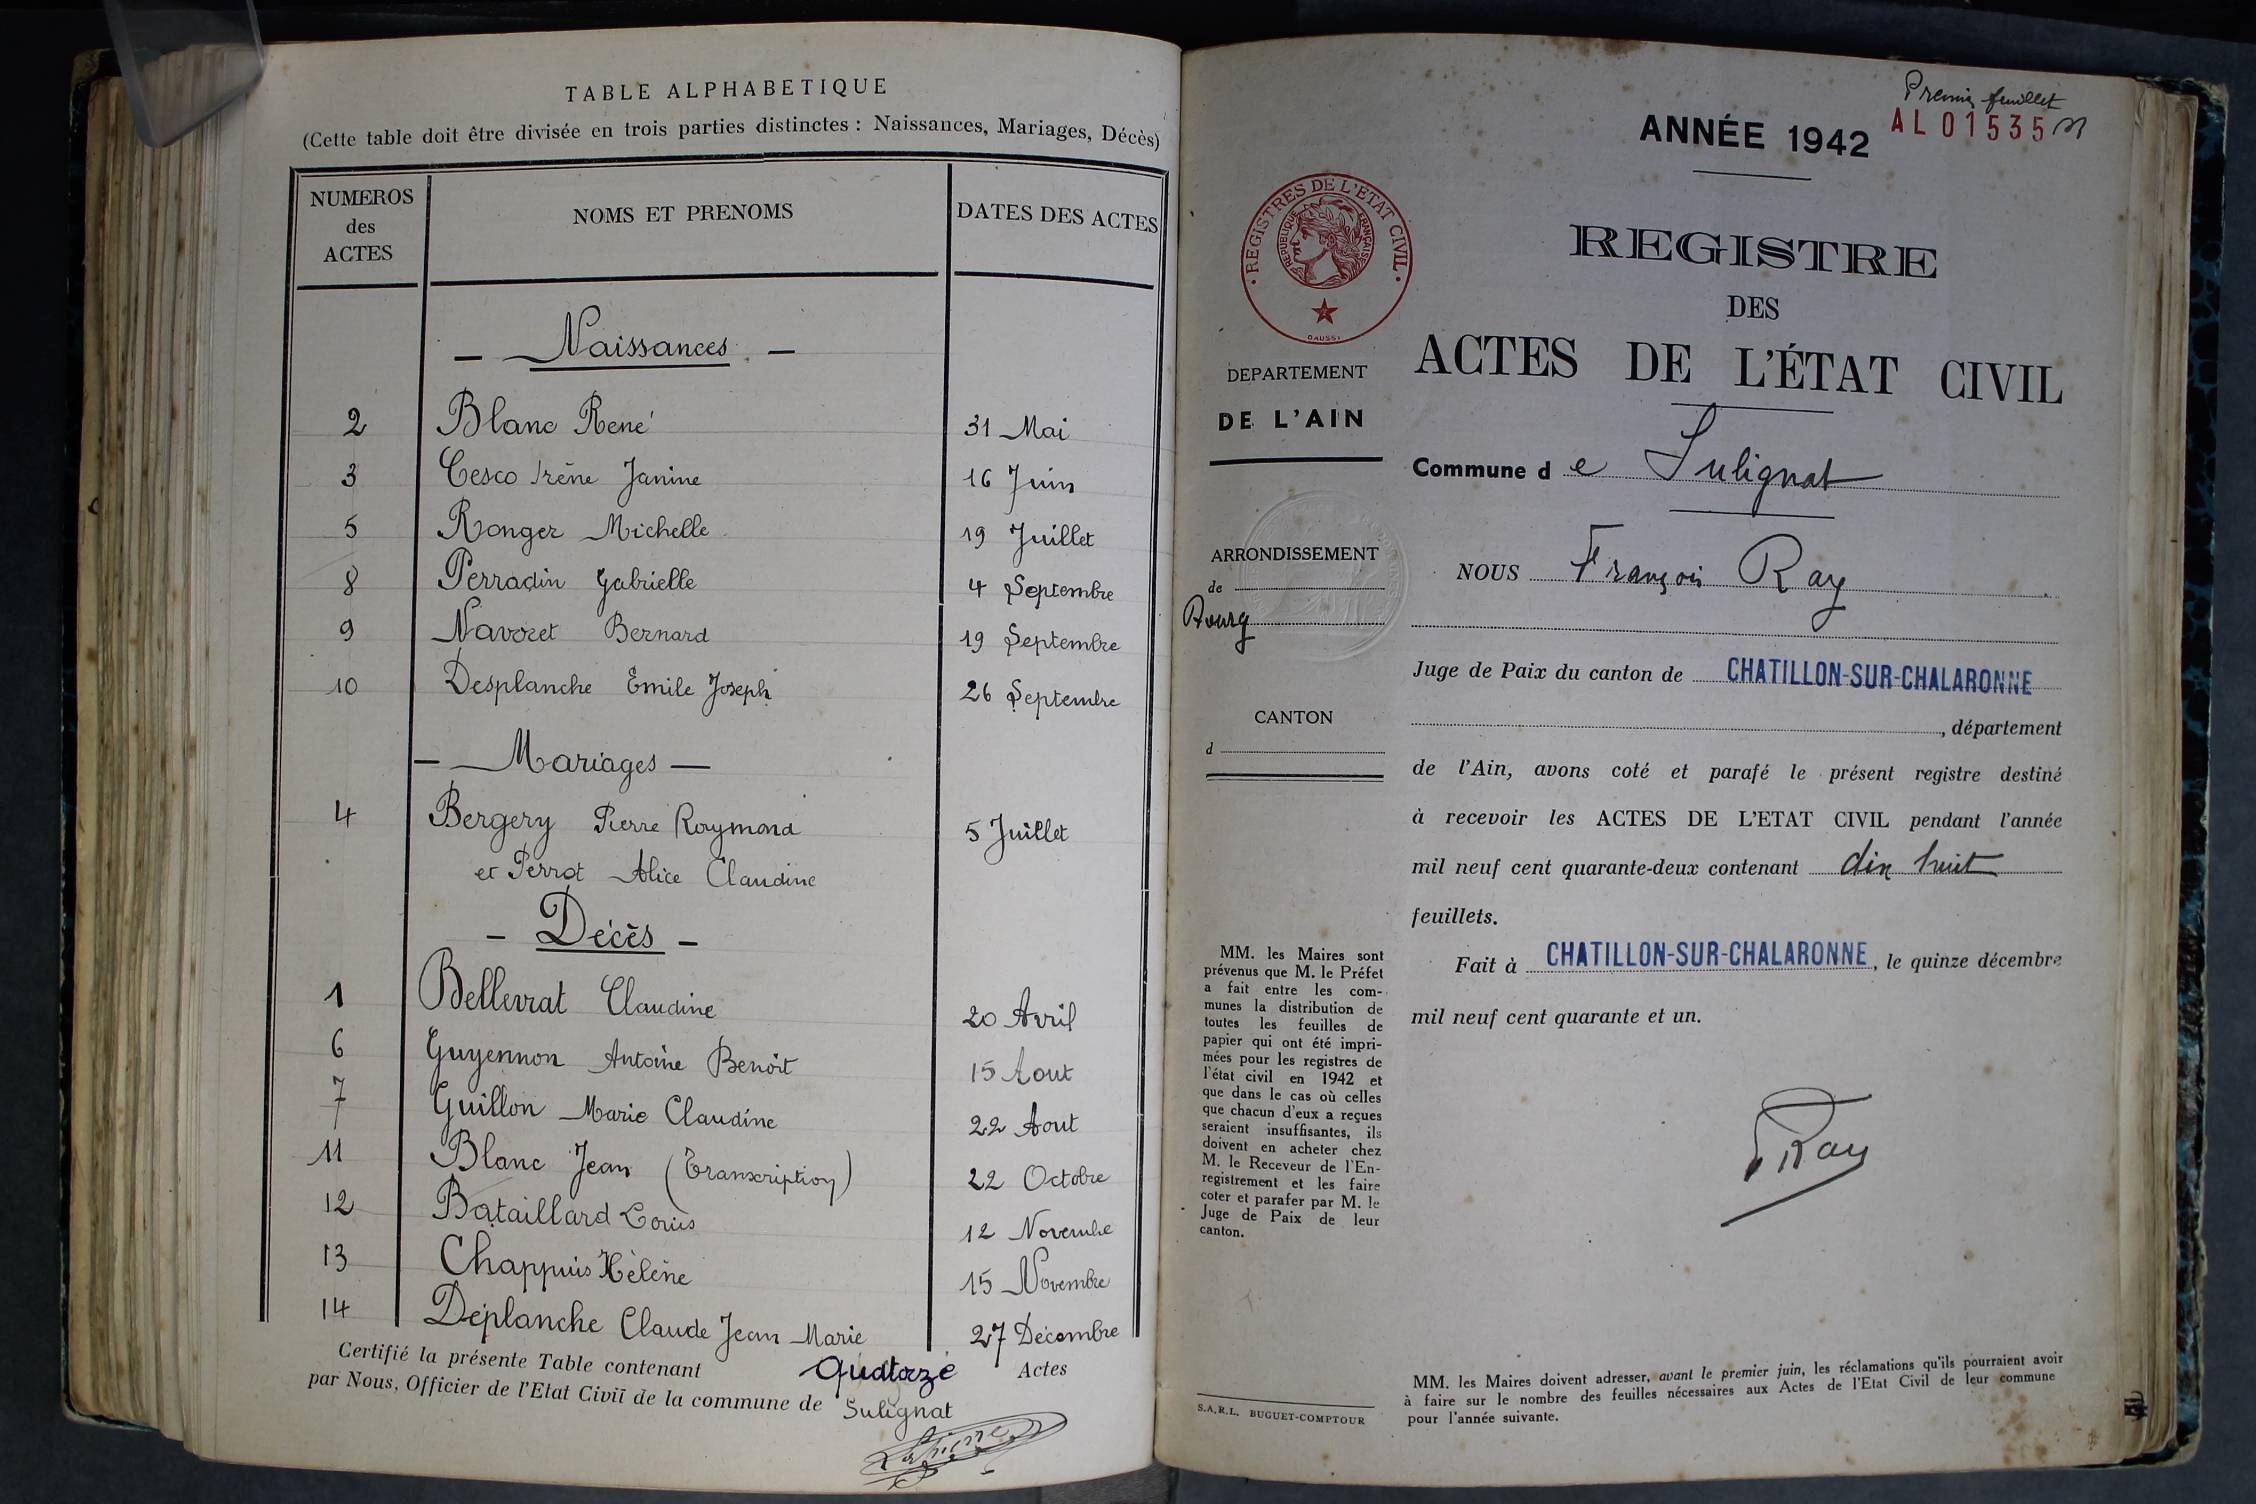 TABLE ALPHABETIQUE
(Cette table doit être divisée en trois parties distinctes : Naissances, Mariages, Décès)
NUMEROS des ACTES
NOMS ET PRENOMS
DATES DES ACTES
— Naissances —
2 Blanc René 31 Mai
3 Cesco Irène Janine 16 Juin
5 Ronger Michelle 19 Juillet
8 Perradin Gabrielle 4 Septembre
9 Navoret Bernard 19 Septembre
10 Desplanche Emile Joseph 26 Septembre
— Mariages —
4 Bergery Pierre Raymond 5 Juillet
et Perrot Alice Claudine
- Décès -
1 Bellevrat Claudine 20 Avril
6 Guyennon Antoine Benoît 15 Aout
7 Guillon Marie Claudine 22 Aout
11 Blanc Jean (Transcription) 22 Octobre
12 Bataillard Louis 12 Novembre
13 Chappuis Hélène 15 Novembre
14 Déplanche Claude Jean Marie 27 Décembre
Certifié la présente Table contenant Quatorze Actes
par Nous, Officier de l'Etat Civil de la commune de Sulignat
Premier feuillet
ANNÉE 1942
AL01535
REGISTRES DE L'ETAT CIVIL
REPUBLIQUE FRANÇAISE
REGISTRE
DES
ACTES DE L'ÉTAT CIVIL
DEPARTEMENT
DE L'AIN
Commune de Sulignat
ARRONDISSEMENT
de
Bourg
CANTON
d
NOUS François Ray
Juge de Paix du canton de CHATILLON-SUR-CHALARONNE
, département
de l'Ain, avons coté et parafé le présent registre destiné
à recevoir les ACTES DE L'ETAT CIVIL pendant l'année
mil neuf cent quarante-deux contenant dix huit
feuillets.
Fait à CHATILLON-SUR-CHALARONNE, le quinze décembre
mil neuf cent quarante et un.
Ray
MM. les Maires sont
prévenus que M. le Préfet
a fait entre les com-
munes la distribution de
toutes les feuilles de
papier qui ont été impri-
mées pour les registres de
l'état civil en 1942 et
que dans le cas où celles
que chacun d'eux a reçues
seraient insuffisantes, ils
doivent en acheter chez
M. le Receveur de l'En-
registrement et les faire
coter et parafer par M. le
Juge de Paix de leur
canton.
S.A.R.L. BUGUET-COMPTOUR
MM. les Maires doivent adresser, avant le premier juin, les réclamations qu'ils pourraient avoir
à faire sur le nombre des feuilles nécessaires aux Actes de l'Etat Civil de leur commune
pour l'année suivante.